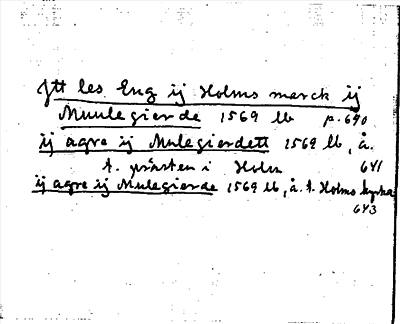 Jtt les Eng ij Holms marck ij
Muulegierde 1569 lb p. 640
ij agre ij Mulegierdett 1569 lb, å.
t. prästen i Holm 641
ij agre ij Mulegierde 1569 lb, å. t. Holms kyrka
643